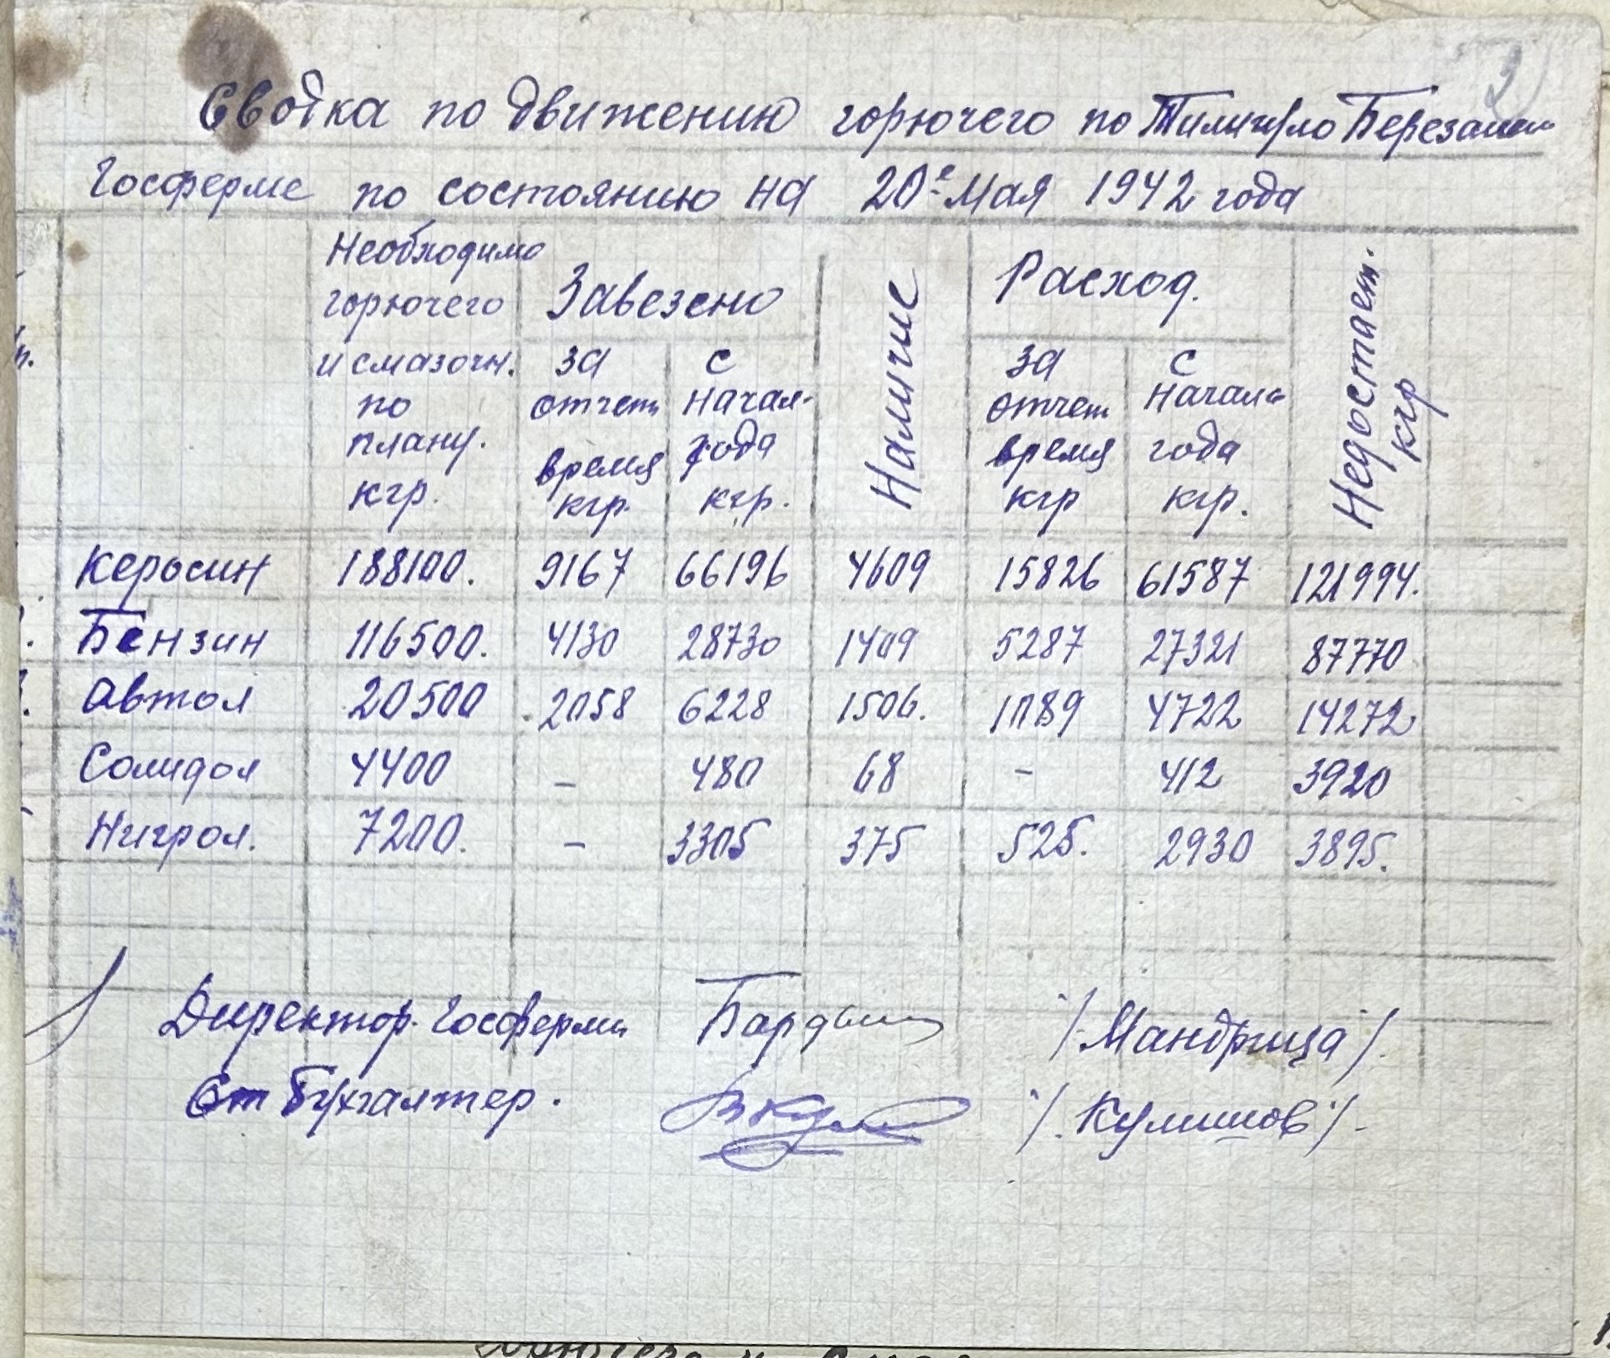 3
Сводка по движению горючего по Тилигуло Березанск
Госферме по состоянию на 20е Мая 1942 года
Необходимо горючего и смазочн. по плану. кгр.
Завезено
за отчетн время кгр.
с начал. года кгр.
Наличие
Расход.
за отчетн время кгр
с начала года кгр.
Недостает. кгр
Керосин 188100. 9167 66196 4609 15826 61587 121994.
Бензин 116500. 4130 28730 1409 5287 27321 87770
Автол 20500 2058 6228 1506. 1089 4722 14272
Солидол 4400 – 480 68 – 412 3920
Нигрол. 7200. – 3305 375 525. 2930 3895.
Директор. Госфермы /Мандрица/.
Ст Бухгалтер. /Кулишов/.